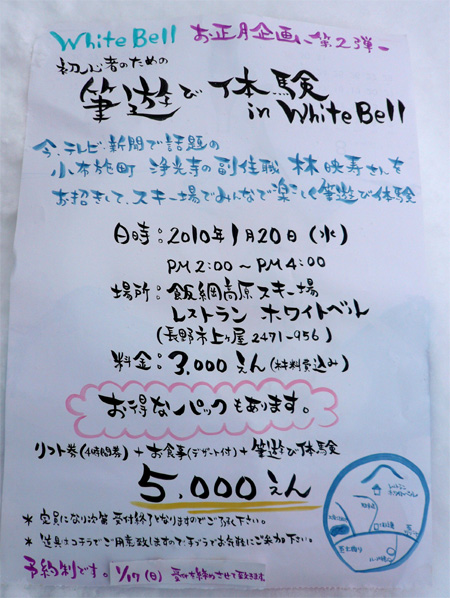 White Bell お正月企画 ー第2弾ー
初心者のための
筆遊び体験
in White Bell
今、テレビ・新聞で話題の
小布施町 浄光寺の副住職 林 映寿さんを
お招きして、スキー場でみんなで楽しく筆遊び体験
日時：2010年1月20日(水)
PM 2:00～PM 4:00
場所：飯綱高原スキー場
レストラン ホワイトベル
(長野市上ヶ屋 2471-956)
料金：3,000えん(材料費込み)
お得なパックもあります。
リフト券(4時間券)＋お食事(デザート付)＋筆遊び体験
5,000えん
＊定員になり次第 受付終了となりますのでご了承下さい。
＊道具はコチラでご用意致しますので、手ブラでお気軽にご参加下さい。
予約制です。 1/17(日) 受付を締めさせて頂きます。